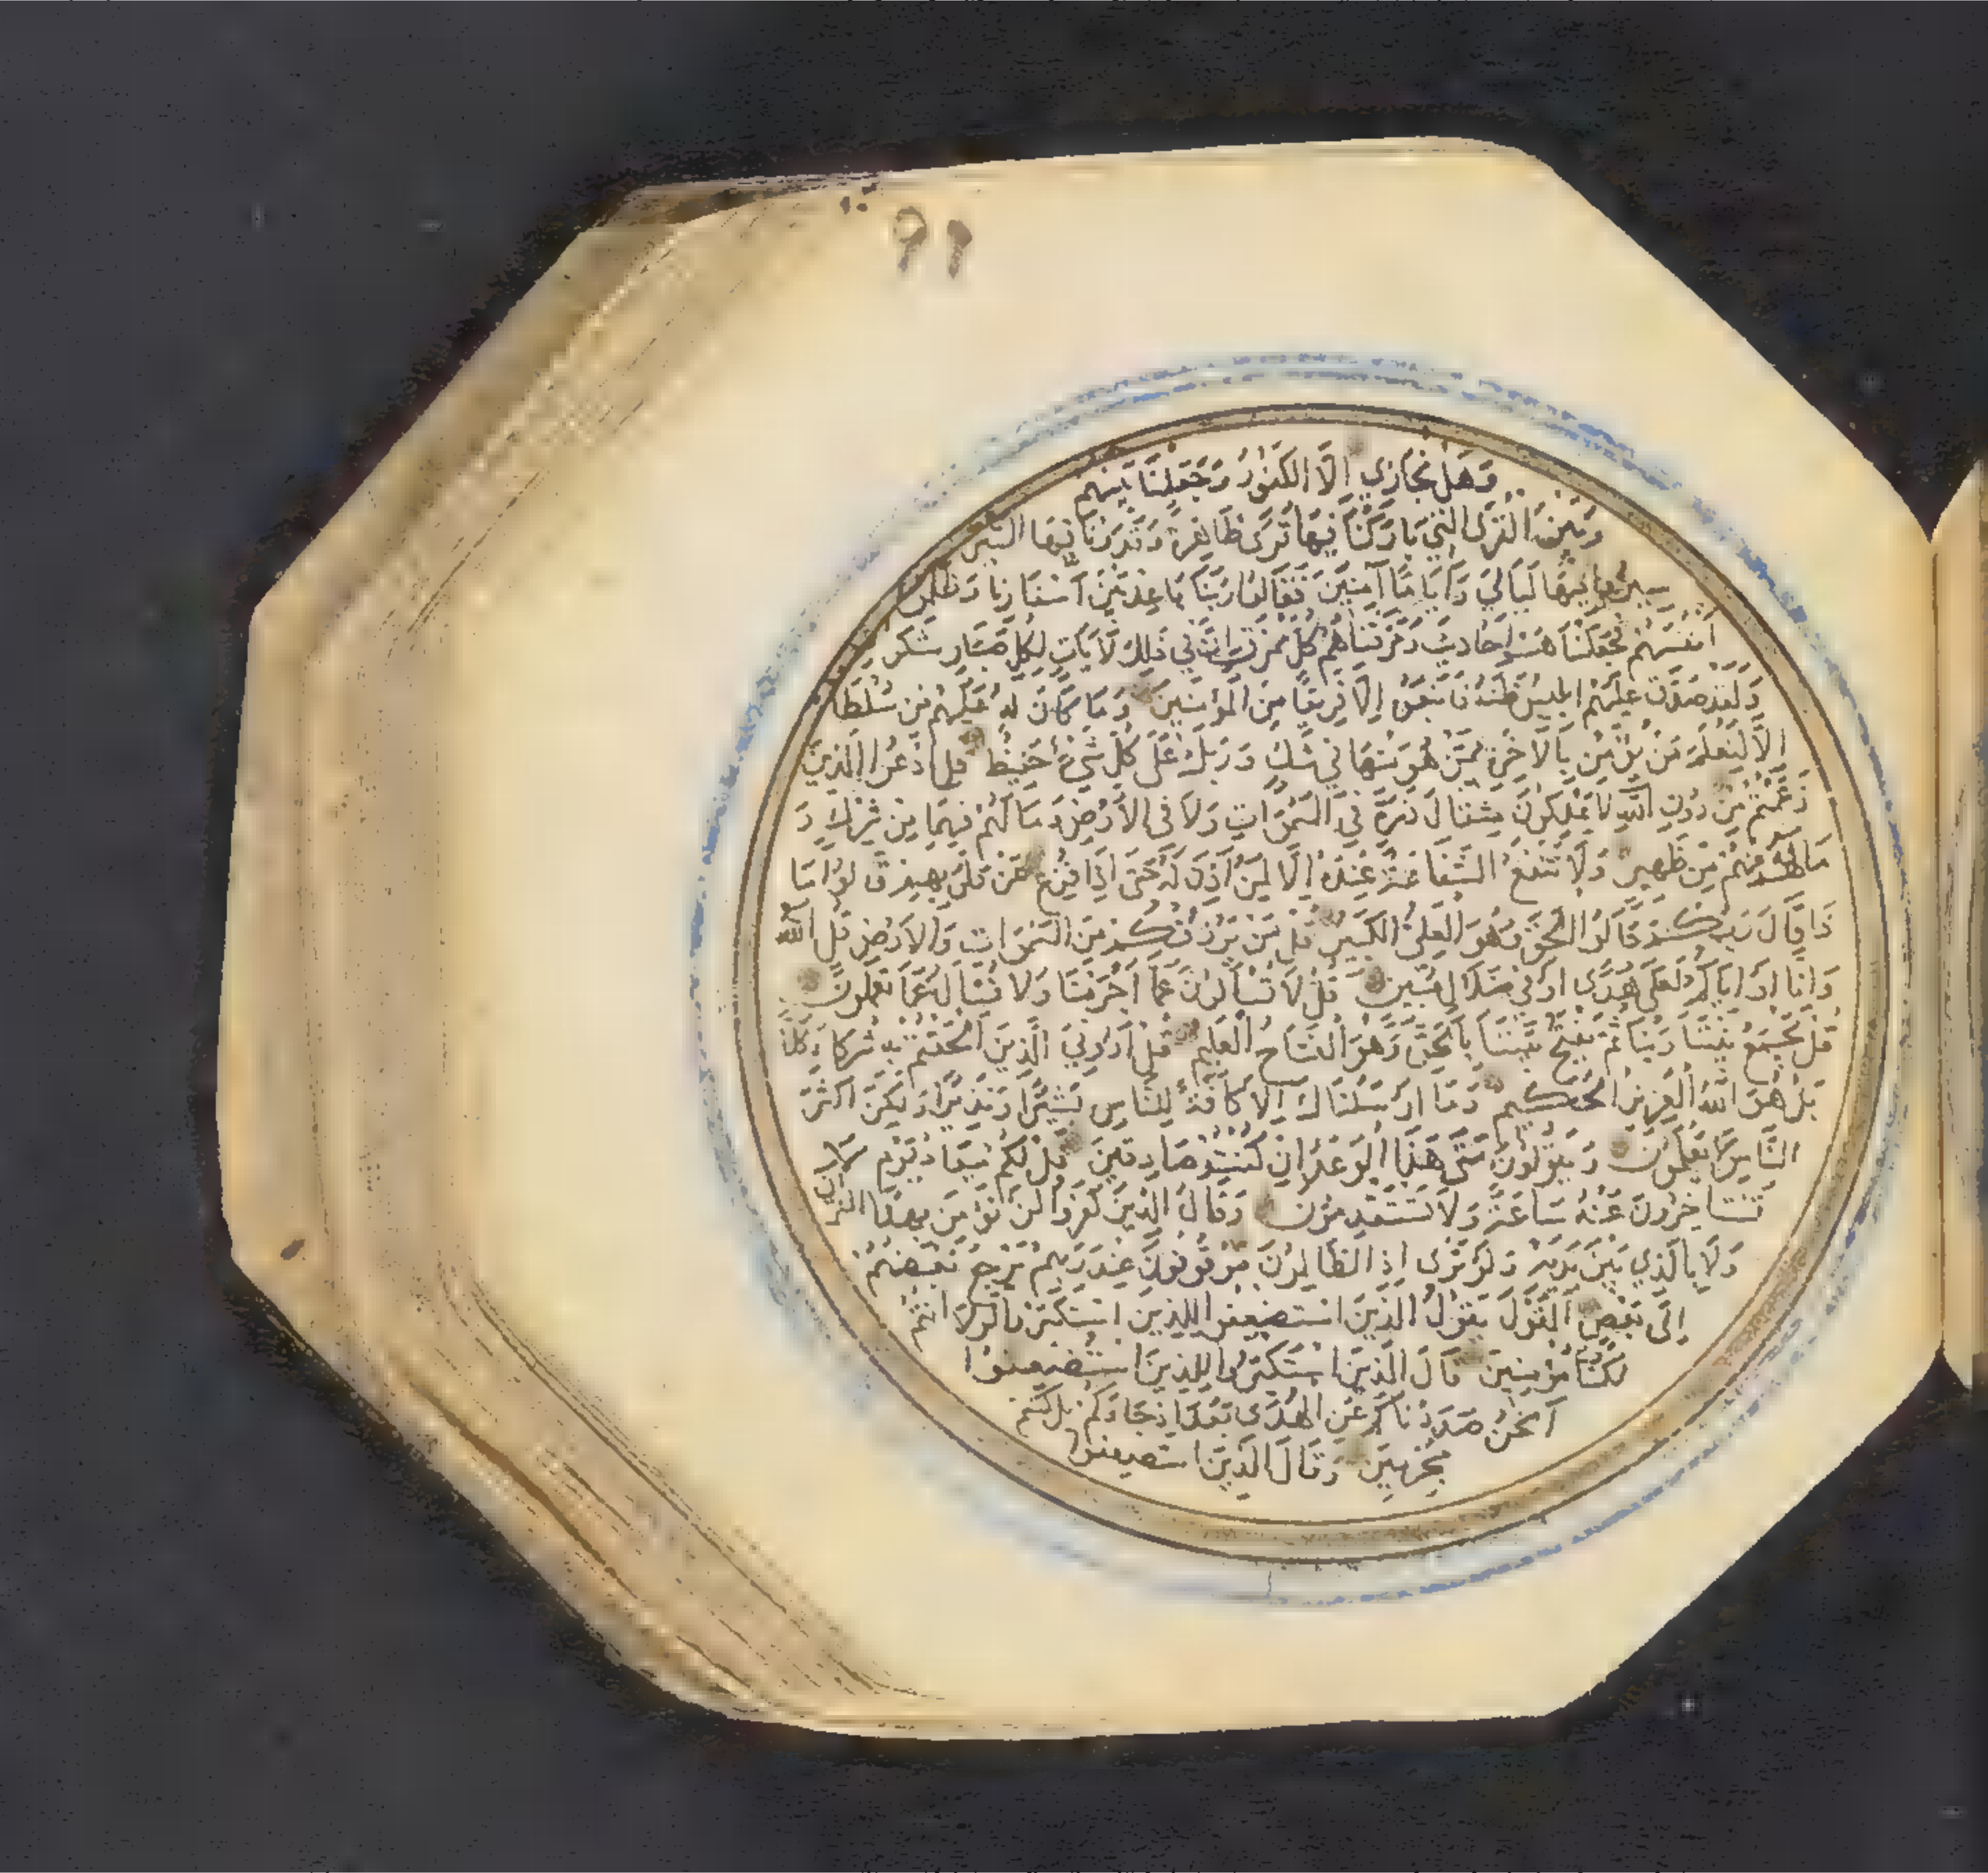 ٩٩
وَهَل نُجَازِي اِلَّا الكَفُورُ وَجَعَلْنَا بَينَهم
وَبَينَ القُرَى الَّتِي بَارَكْنَا فِيهَا قُرَى ظَاهِرَةً وَقَدَّرْنَا فِيهَا السَّيْرَ
سِيرُوا فِيهَا لَيَالِيَ وَأَيَّامًا آمِنِينَ فَقَالُوا رَبَّنَا بَاعِدْ بَيْنَ اَسْفَارِنَا وَظَلَمُوا
اَنفُسَهُمْ فَجَعَلْنَاهُمْ اَحَادِيثَ وَمَزَّقْنَاهُمْ كُلَّ مُمَزَّقٍ اِنَّ فِي ذَلِكَ لَآيَاتٍ لِكُلِّ صَبَّارٍ شَكُورٍ
وَلَقَدْ صَدَّقَ عَلَيْهِمْ اِبْلِيسُ ظَنَّهُ فَاتَّبَعُوهُ اِلَّا فَرِيقًا مِنَ الْمُؤْمِنِينَ وَمَا كَانَ لَهُ عَلَيْهِمْ مِن سُلْطَا
اِلَّا لِنَعْلَمَ مَنْ يُؤْمِنُ بِالْآخِرَةِ مِمَّنْ هُوَ مِنْهَا فِي شَكٍّ وَرَبُّكَ عَلَى كُلِّ شَيْءٍ حَفِيظٌ قُلِ ادْعُوا الَّذِينَ
زَعَمْتُمْ مِنْ دُونِ اللَّهِ لَا يَمْلِكُونَ مِثْقَالَ ذَرَّةٍ فِي السَّمَوَاتِ وَلَا فِي الْاَرْضِ وَمَا لَهُمْ فِيهِمَا مِنْ شِرْكٍ وَ
مَا لَهُ مِنْهُمْ مِنْ ظَهِيرٍ وَلَا تَنْفَعُ الشَّفَاعَةُ عِنْدَهُ اِلَّا لِمَنْ اَذِنَ لَهُ حَتَّى اِذَا فُزِّعَ عَنْ قُلُوبِهِمْ قَالُوا مَا
ذَا قَالَ رَبُّكُمْ قَالُوا الْحَقَّ وَهُوَ الْعَلِيُّ الْكَبِيرُ قُلْ مَنْ يَرْزُقُكُمْ مِنَ السَّمَوَاتِ وَالْاَرْضِ قُلِ اللَّهُ
وَاِنَّا اَوْ اِيَّاكُمْ لَعَلَى هُدًى اَوْ فِي ضَلَالٍ مُبِينٍ قُلْ لَا تُسْأَلُونَ عَمَّا اَجْرَمْنَا وَلَا نُسْأَلُ عَمَّا تَعْمَلُونَ
قُلْ يَجْمَعُ بَيْنَنَا رَبُّنَا ثُمَّ يَفْتَحُ بَيْنَنَا بِالْحَقِّ وَهُوَ الْفَتَّاحُ الْعَلِيمُ قُلْ اَرُونِيَ الَّذِينَ اَلْحَقْتُمْ بِهِ شُرَكَاءَ كَلَّا
بَلْ هُوَ اللَّهُ الْعَزِيزُ الْحَكِيمُ وَمَا اَرْسَلْنَاكَ اِلَّا كَافَّةً لِلنَّاسِ بَشِيرًا وَنَذِيرًا وَلَكِنَّ اَكْثَرَ
النَّاسِ لَا يَعْلَمُونَ وَيَقُولُونَ مَتَى هَذَا الْوَعْدُ اِنْ كُنْتُمْ صَادِقِينَ قُلْ لَكُمْ مِيعَادُ يَوْمٍ لَا
تَسْتَاخِرُونَ عَنْهُ سَاعَةً وَلَا تَسْتَقْدِمُونَ وَقَالَ الَّذِينَ كَفَرُوا لَنْ نُؤْمِنَ بِهَذَا القُرْآنِ
وَلَا بِالَّذِي بَيْنَ يَدَيْهِ وَلَوْ تَرَى اِذِ الظَّالِمُونَ مَوْقُوفُونَ عِنْدَ رَبِّهِمْ يَرْجِعُ بَعْضُهُمْ
اِلَى بَعْضٍ الْقَوْلَ يَقُولُ الَّذِينَ اسْتُضْعِفُوا لِلَّذِينَ اسْتَكْبَرُوا لَوْلَا اَنْتُمْ
لَكُنَّا مُؤْمِنِينَ قَالَ الَّذِينَ اسْتَكْبَرُوا لِلَّذِينَ اسْتُضْعِفُوا
اَنَحْنُ صَدَدْنَاكُمْ عَنِ الْهُدَى بَعْدَ اِذْ جَاءَكُمْ بَلْ كُنْتُمْ
مُجْرِمِينَ وَقَالَ الَّذِينَ اسْتُضْعِفُوا